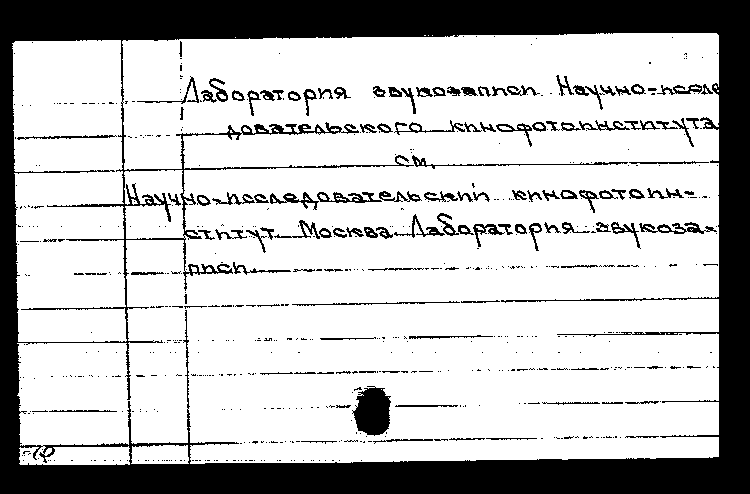 Лаборатория звукозаписи Научно-иссле
довательского кинофотоинститута
см.
Научно-исследовательский кинофотоин-
ститут. Москва. Лаборатория звукоза-
писи.